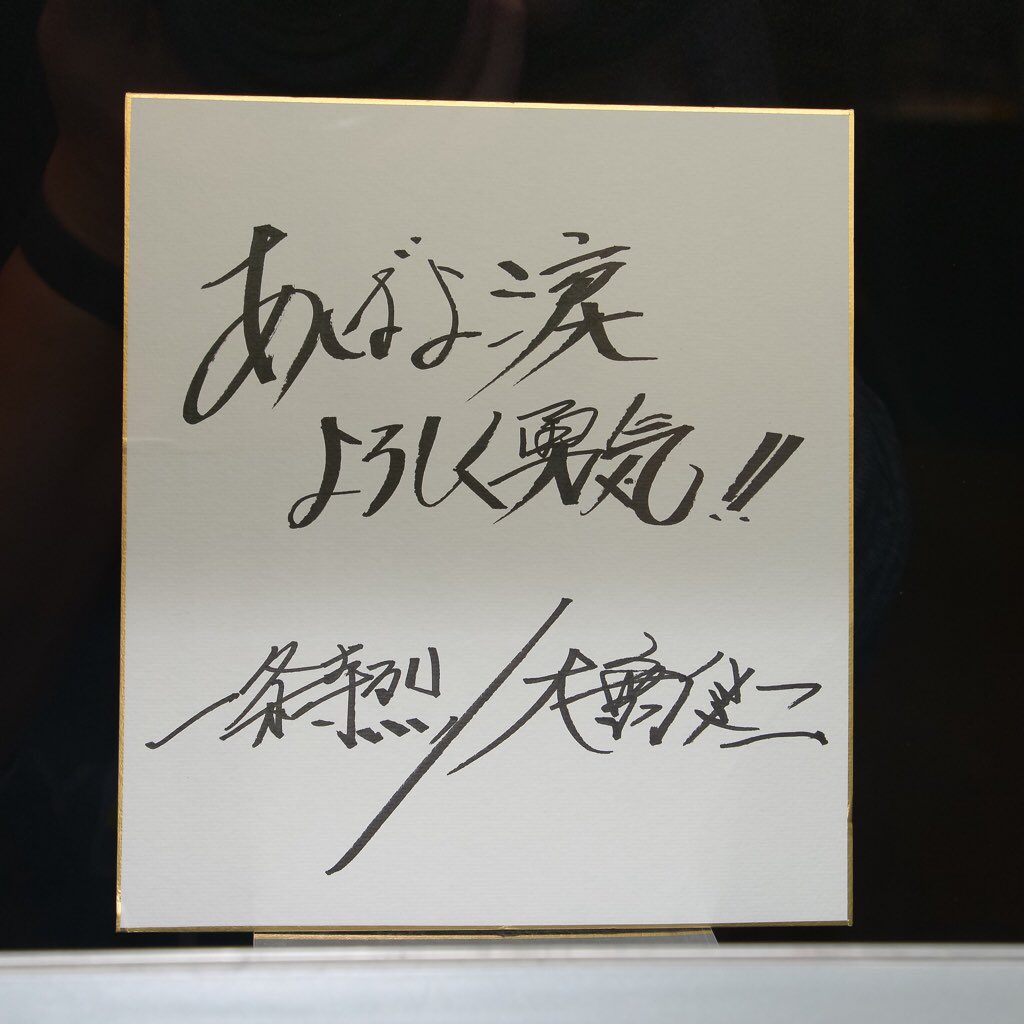 あばよ涙
よろしく勇気!!
一条寺烈／大葉健二